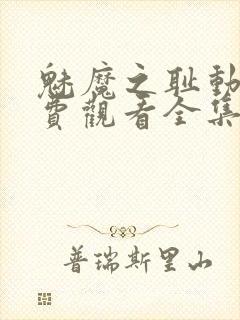 魅魔之耻動
費觀看全集
普瑞斯里山